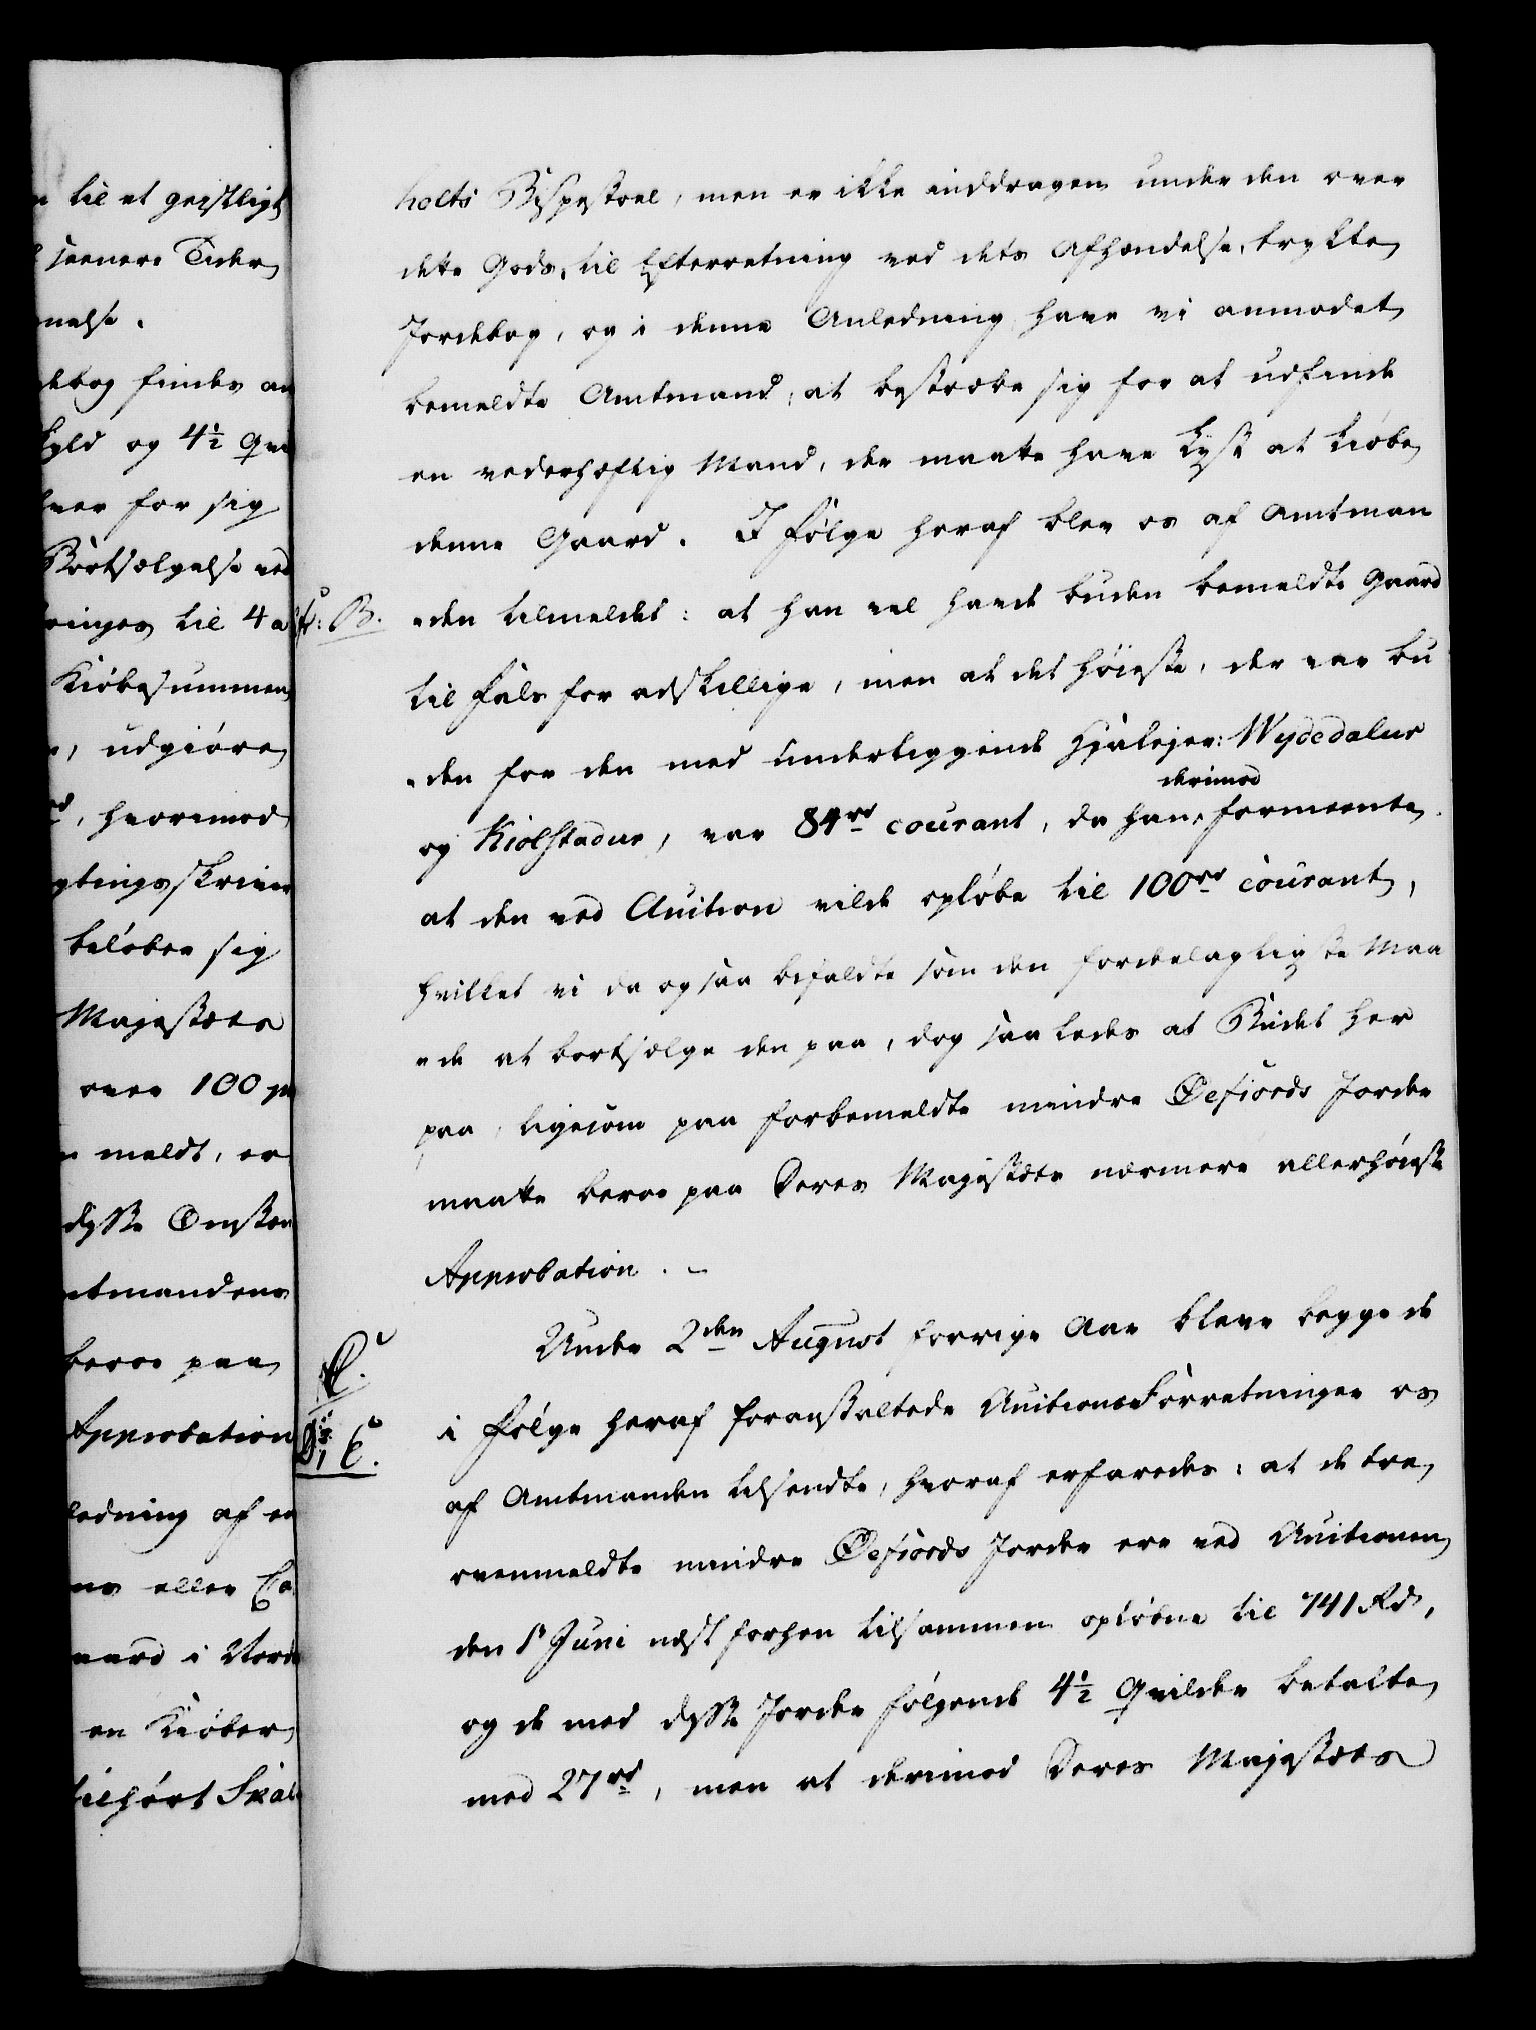 til et geistligt
seenere Tider
nelse.
debog findes an
kyld og 4½ Qvi
hver for sig
Bortsælgelse ved
ringes til 4 a
Kiøbesummen
udgiøre
, hvorimod
gtingsskriver
beløber sig
Majestæts
over 100 p
meldt, er
disse Omstæn
mtmandens
beroe paa
Approbation
ledning af en
ns eller
aard i Nord
en Kiøber
tilhørt Skal
holts Bispestoel, men er ikke inddragen under den over
dette Gods, til Efterretning ved dets Afhændelse, trykte
Jordebog, og i denne Anledning have vi anmodet
bemeldte Amtmand, at bestræbe sig for at udfinde
en vederhæftig Mand, der maatte have Lyst at kiøbe
denne Gaard. I Følge heraf blev os af Amtman
B.
den tilmeldet: at han vel havde buden bemeldte Gaard
til Fals for adskillige, men at det høieste, der var bu
den for den med underliggende Hjaleyer: Wydedalur
derimod
og Kiolstadur, var 84 rd courant, da han formeente
at den ved Auction vilde opløbe til 100 rd courant,
hvilket vi da ogsaa befaldte som den fordelagtigste Maa
de at bortsælge den paa, dog saaledes at Budet her
paa, ligesom paa forbemeldte mindre Øefiords Jorder
maatte beroe paa Deres Majestæts nærmere allerhøieste
Approbation. –
Under 2den August forrige Aar bleve begge de
C.
i Følge heraf foranstaltede Auctions Forretninger os
af Amtmanden tilsendte, hvoraf erfaredes: at de tre
ovenmeldte mindre Øefiords Jorder ere ved Auctionen
den 1 Juni næst forhen tilsammen opløbne til 741 Rd,
og de med disse Jorder følgende 4½ Qvilder betalte
med 27 rd, men at derimod Deres Majestæts